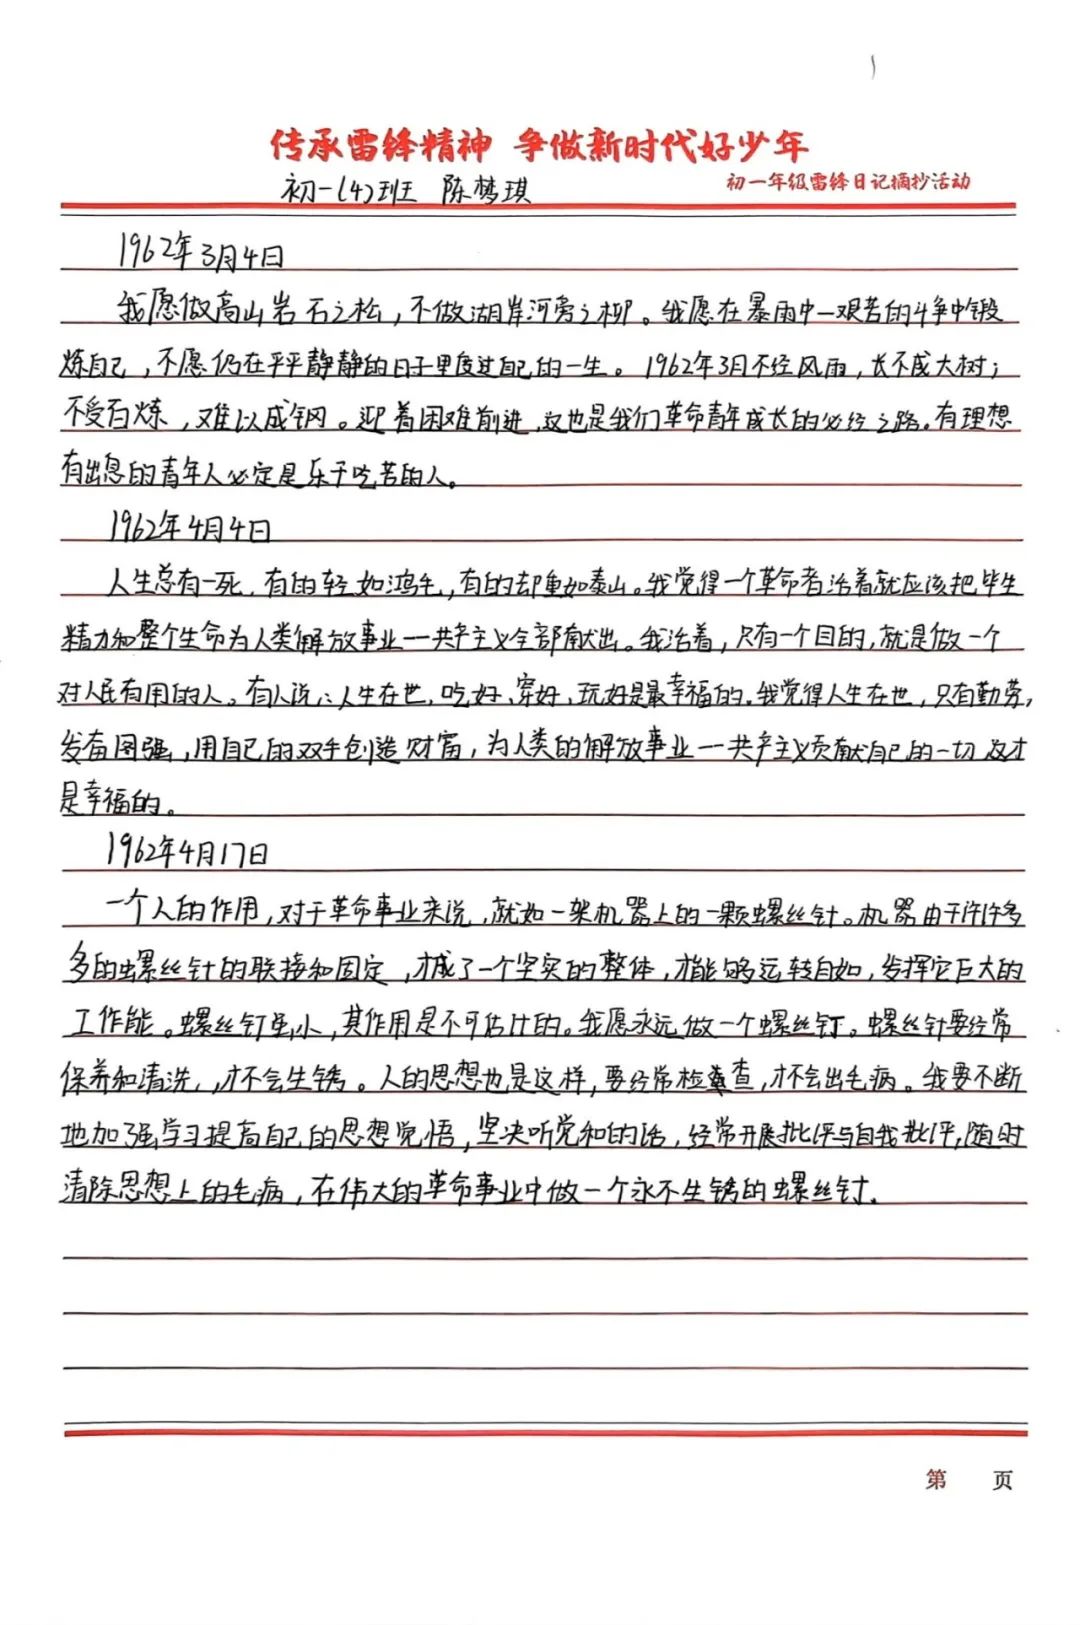 传承雷锋精神 争做新时代好少年
初一(4)班 陈梦琪
初一年级雷锋日记摘抄活动
1962年3月4日
我愿做高山岩石之松，不做湖岸河旁之柳。我愿在暴雨中一艰苦的斗争中锻
炼自己，不愿仍在平平静静的日子里度过自己的一生。1962年3月不经风雨，长不成大树；
不受百炼，难以成钢。迎着困难前进，这也是我们革命青年成长的必经之路。有理想
有出息的青年人必定是乐于吃苦的人。
1962年4月4日
人生总有一死，有的轻如鸿毛，有的却重如泰山。我觉得一个革命者活着就应该把毕生
精力和整个生命为人类解放事业一共产主义全部献出。我活着，只有一个目的，就是做一个
对人民有用的人。有人说：人生在世，吃好、穿好、玩好是最幸福的。我觉得人生在世，只有勤劳，
发奋图强，用自己的双手创造财富，为人类的解放事业一共产主义贡献自己的一切 这才
是幸福的。
1962年4月17日
一个人的作用，对于革命事业来说，就如一架机器上的一颗螺丝针。机器由于许许多
多的螺丝针的联接和固定，才成了一个坚实的整体，才能够运转自如，发挥它巨大的
工作能。螺丝钉虽小，其作用是不可估计的。我愿永远做一个螺丝钉。螺丝针要经常
保养和清洗，才不会生锈。人的思想也是这样，要经常检查，才不会出毛病。我要不断
地加强学习提高自己的思想觉悟，坚决听党和的话，经常开展批评与自我批评，随时
清除思想上的毛病，在伟大的革命事业中做一个永不生锈的螺丝钉.
第 页